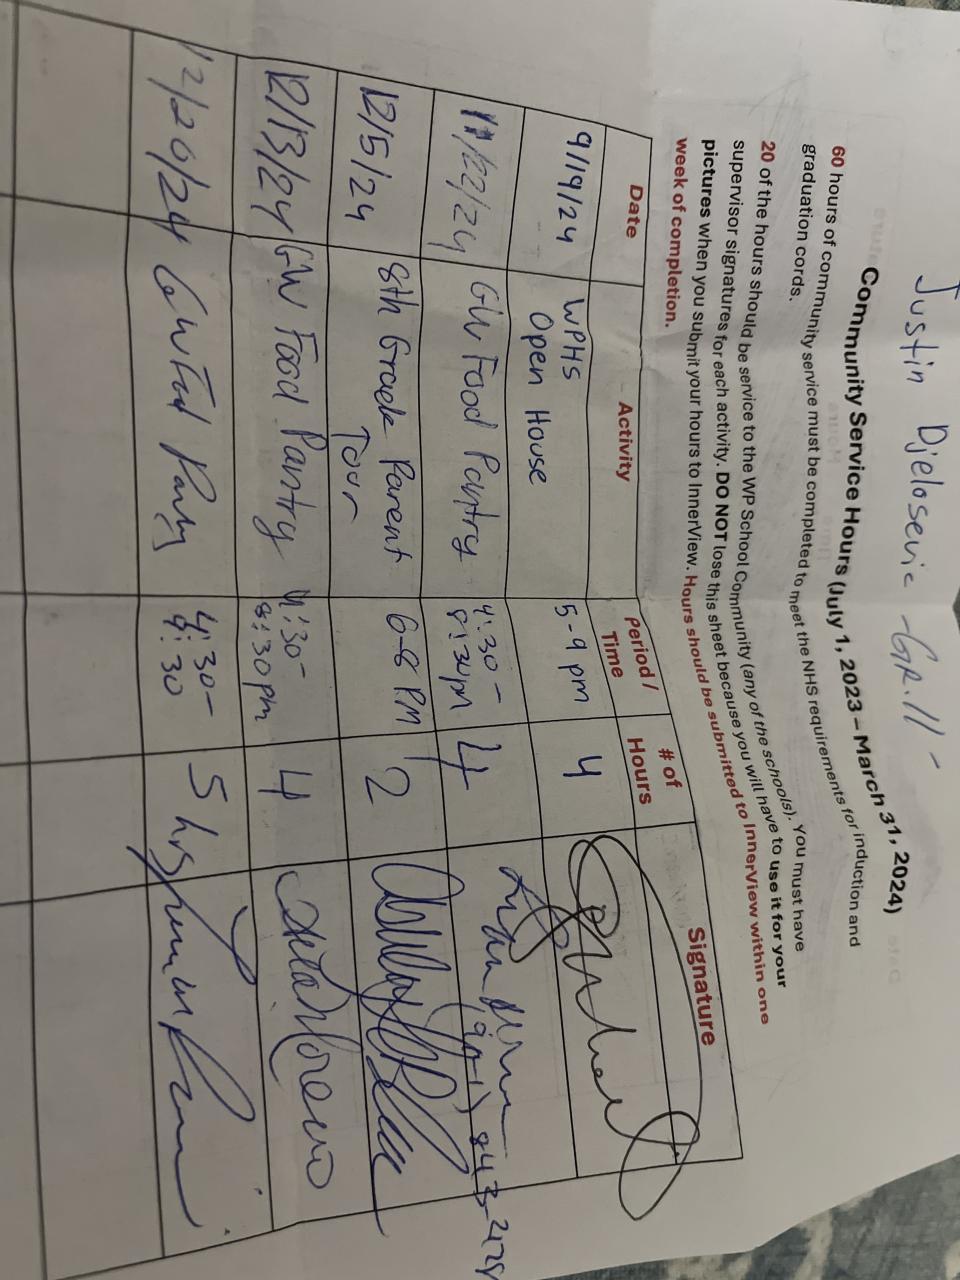 Justin Djelosevic - Gr. 11 -
Community Service Hours (July 1, 2023 – March 31, 2024)
60 hours of community service must be completed to meet the NHS requirements for induction and
graduation cords.
20 of the hours should be service to the WP School Community (any of the schools). You must have
supervisor signatures for each activity. DO NOT lose this sheet because you will have to use it for your
pictures when you submit your hours to InnerView. Hours should be submitted to InnerView within one
week of completion.
Date Activity Period / Time # of Hours Signature
9/19/24 WPHS Open House 5-9 pm 4
11/22/24 GW Food Pantry 4:30 - 8:30pm 4
8th Grade Parent Tour 6-8 PM 2
12/5/24
12/13/24 GW Food Pantry 4:30- 8:30pm 4
12/20/24 GW Food Pantry 4:30- 9:30 5 hrs